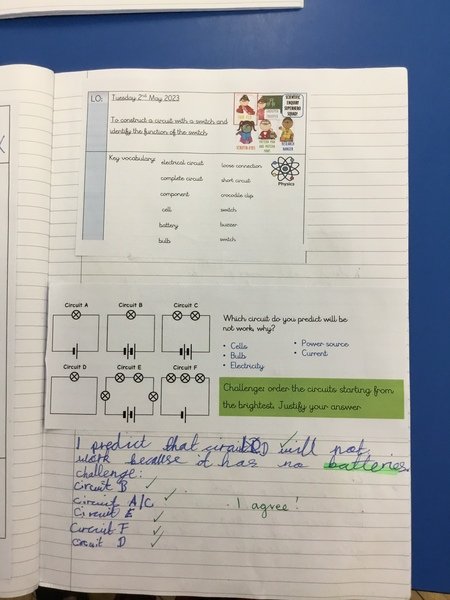 LO: Tuesday 2nd May 2023
To construct a circuit with a switch and
identify the function of the switch
SCIENTIFIC
ENQUIRY
SUPERHERO
SQUAD!
Physics
Key vocabulary: electrical circuit loose connection
complete circuit short circuit
component crocodile clip
cell switch
battery buzzer
bulb switch
Circuit A Circuit B Circuit C
Circuit D Circuit E Circuit F
Which circuit do you predict will be
not work, why?
• Cells • Power source
• Bulb • Current
• Electricity
Challenge: order the circuits starting from
the brightest. Justify your answer
I predict that circuit D ✓ will not
work because it has no batteries.
Challenge:
Circuit B ✓
Circuit A/C ✓ I agree!
Circuit E ✓
Circuit F ✓
Circuit D ✓